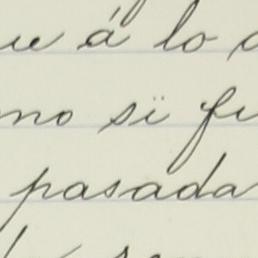 ue á lo
mo sï fu
pasada